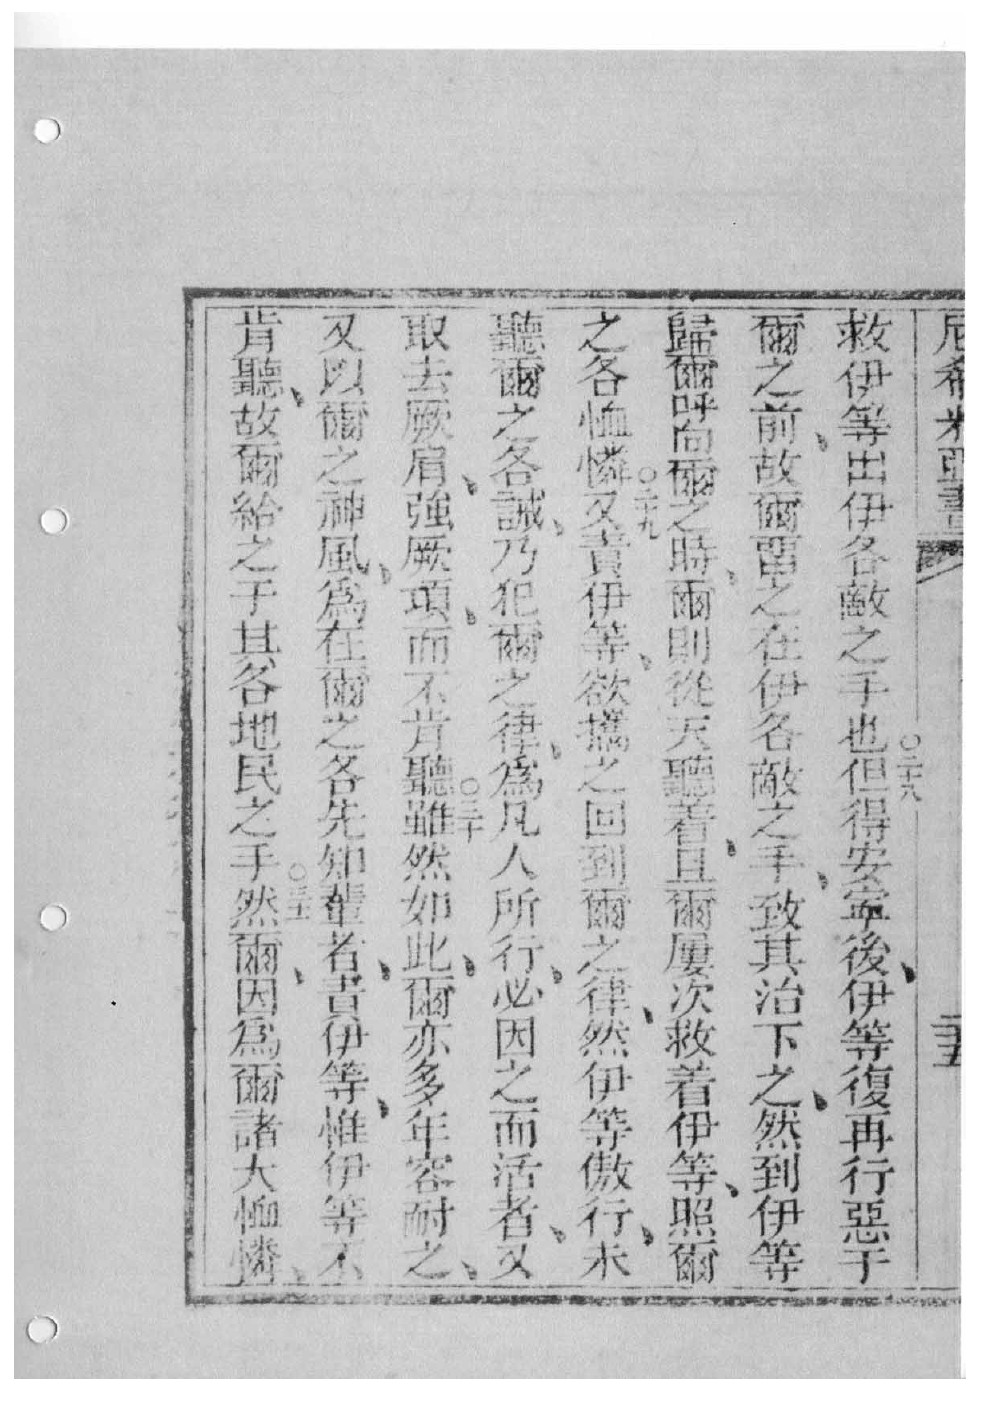 尼希米亞書
二十五
救伊等出伊各敵之手也○二十八但得安寧後、伊等復再行惡于
爾之前、故爾畱之在伊各敵之手、致其治下之、然到伊等
歸爾呼向爾之時、爾則從天聽着、且爾屢次救着伊等、照爾
之各恤憐○二十九又責伊等、欲攜之回到爾之律、然伊等傲行、未
聽爾之各誡、乃犯爾之律、爲凡人所行、必因之而活者、又
取去厥肩、強厥項、而不肯聽○三十雖然如此、爾亦多年容耐之、
又以爾之神風、爲在爾之各先知輩者、責伊等、惟伊等不
肯聽、故爾給之于其各地民之手○三十一然爾、因爲爾諸大恤憐、